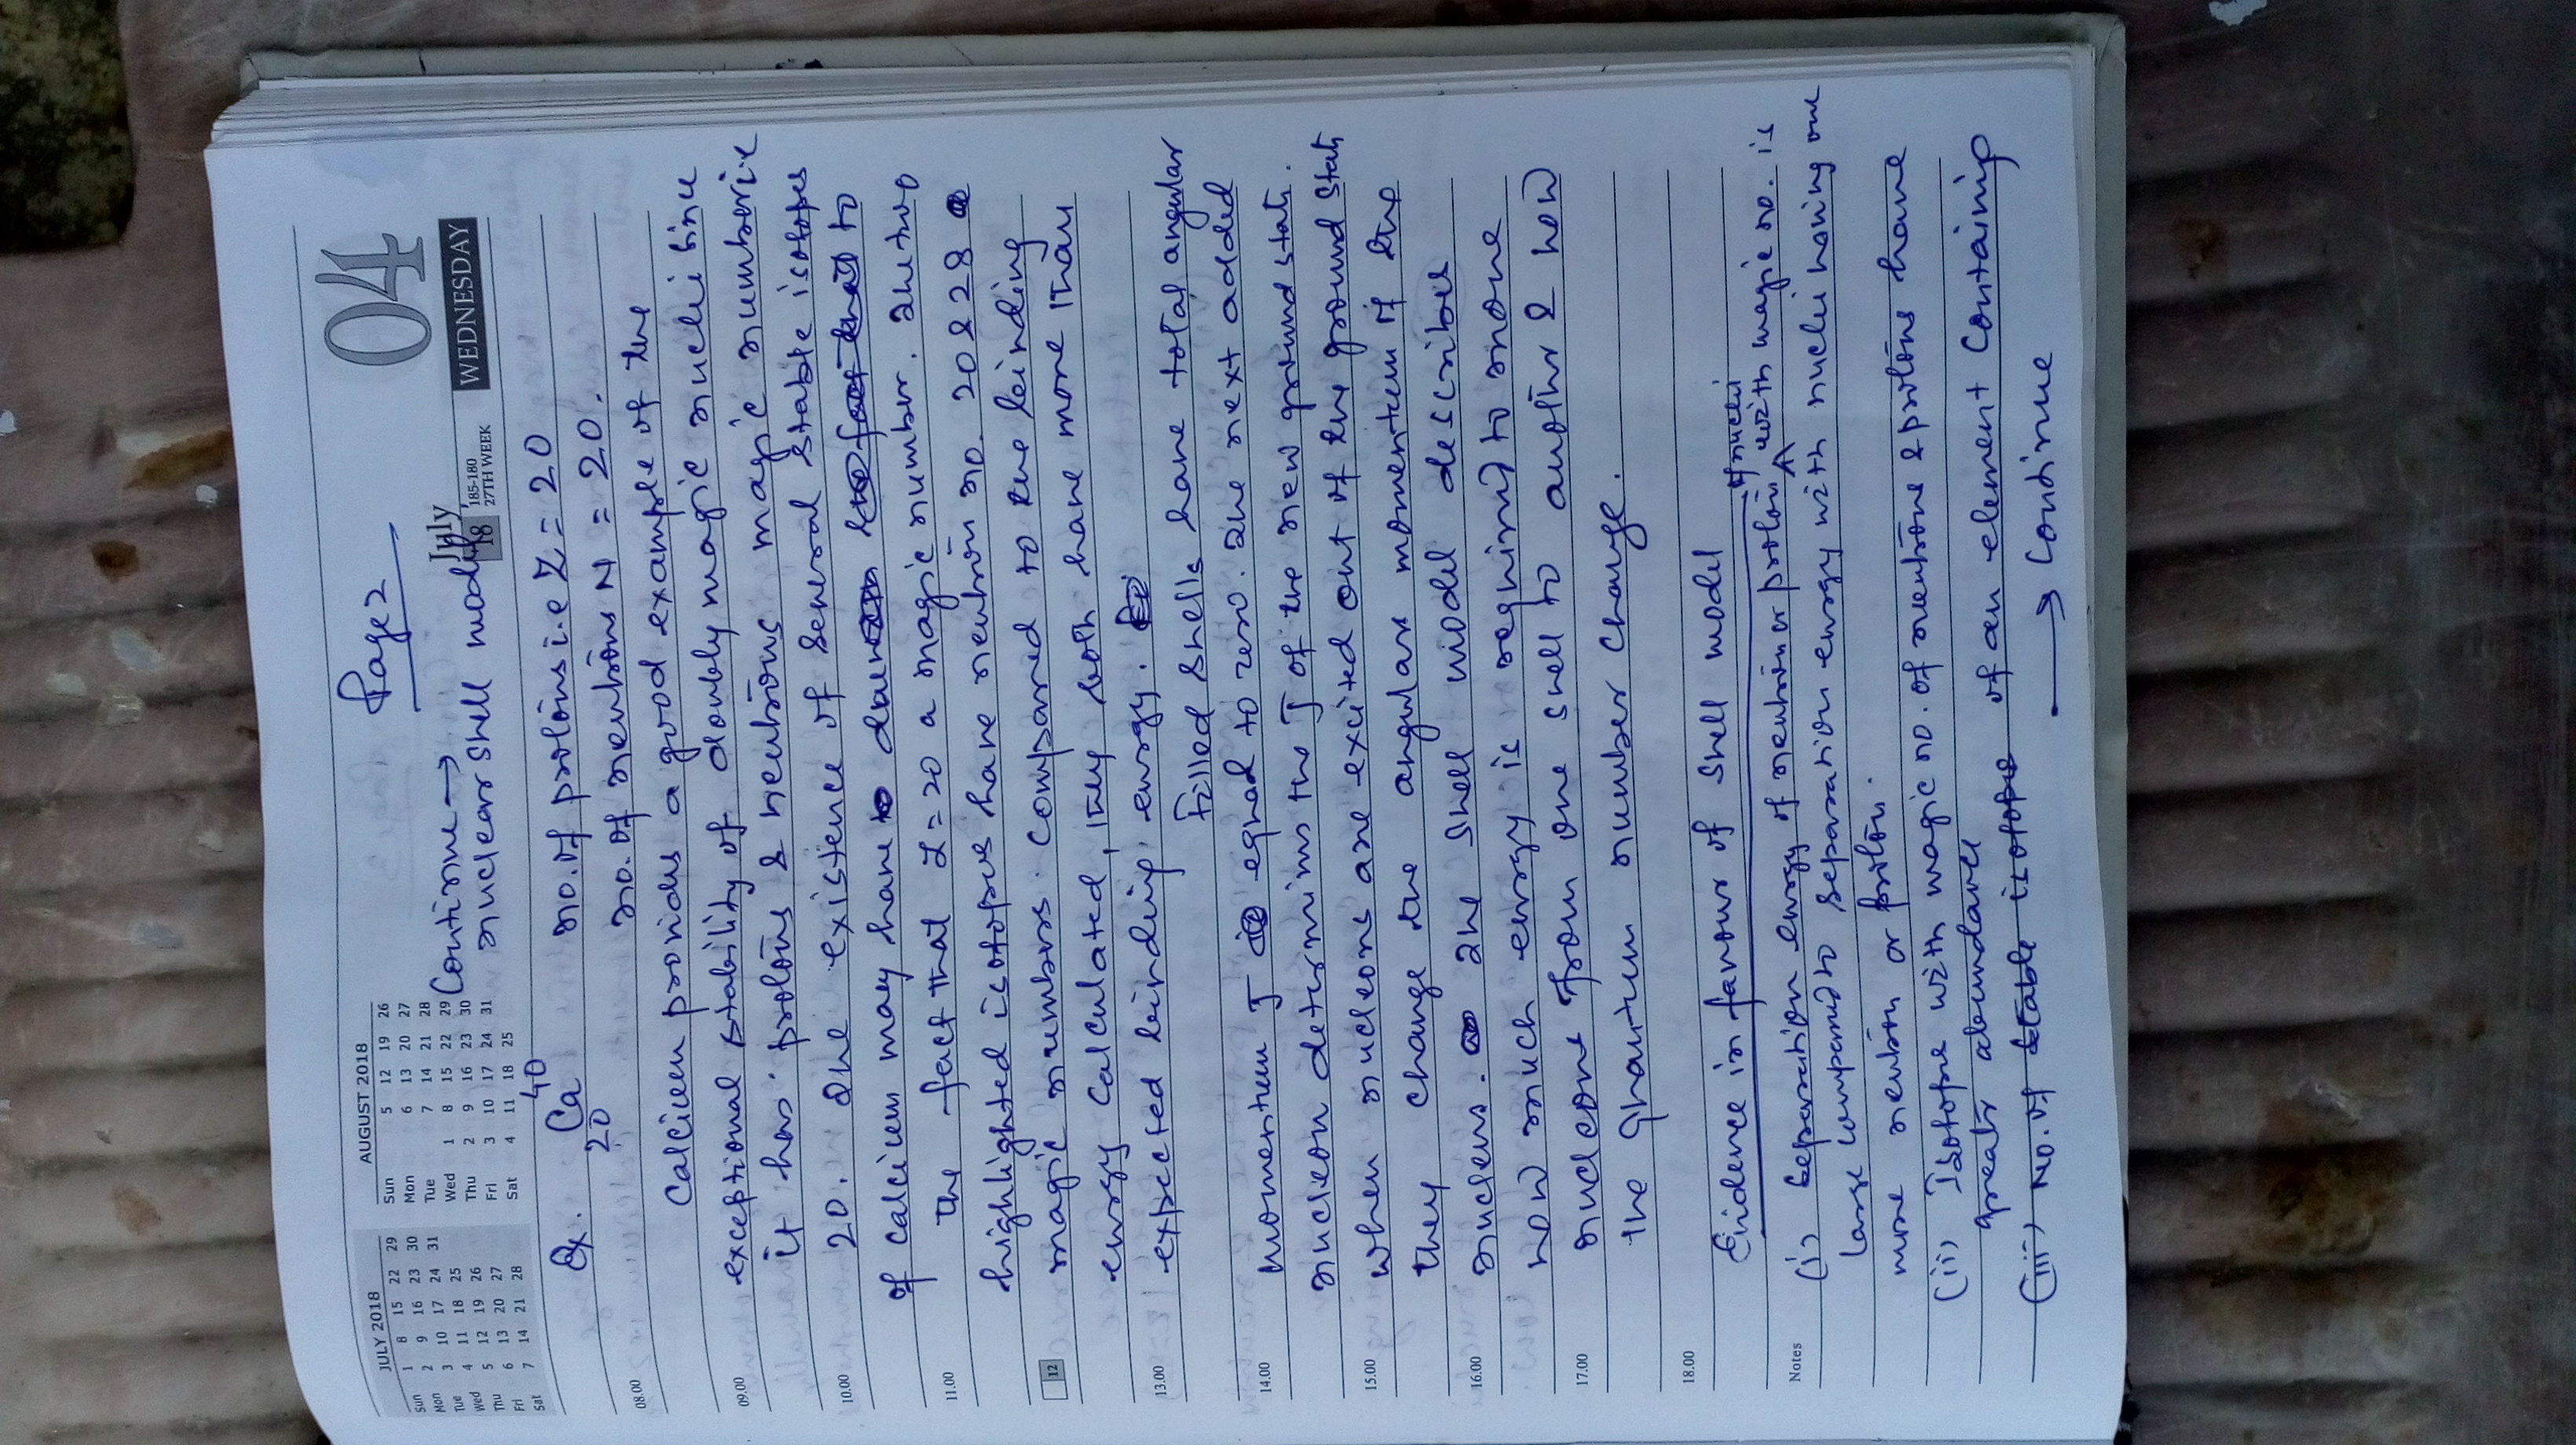 Page 2
04
July
18
185-180
27TH WEEK
WEDNESDAY
JULY 2018
Sun 1 8 15 22 29
Mon 2 9 16 23 30
Tue 3 10 17 24 31
Wed 4 11 18 25
Thu 5 12 19 26
Fri 6 13 20 27
Sat 7 14 21 28
AUGUST 2018
Sun 5 12 19 26
Mon 6 13 20 27
Tue 7 14 21 28
Wed 1 8 15 22 29
Thu 2 9 16 23 30
Fri 3 10 17 24 31
Sat 4 11 18 25
Continue →
nuclear shell model
Ex. 20 Ca 40 no. of protons i.e Z = 20
no. of neutrons N = 20.
08.00
Calcium provides a good example of the
exceptional stability of doubly magic nuclei since
09.00
it has protons & neutrons magic number i.e
20. The existence of several stable isotopes
10.00
of calcium may have to do with the fact that to
the fact that Z = 20 a magic number. The two
11.00
highlighted isotopes have neutron no. 20 & 28 a
magic numbers. Compared to the binding
12
energy calculated, they both have more than
expected binding energy.
13.00
Filled shells have total angular
momentum J equal to zero. The next added
14.00
nucleon determines the J of the new ground state.
when nucleons are excited out of the ground state
15.00
they change the angular momentum of the
nucleus. The shell model describes
16.00
how much energy is required to move
nucleons from one shell to another & how
17.00
the quantum number change.
18.00
Evidence in favour of shell model
Notes
(i) Seperation energy of neutron or proton of nuclei with magic no. is
large compared to separation energy with nuclei having one
more neutron or proton.
(ii) Isotope with magic no. of neutrons & protons have
greater abundance
(iii) No. of stable isotopes of an element containing
→ Continue